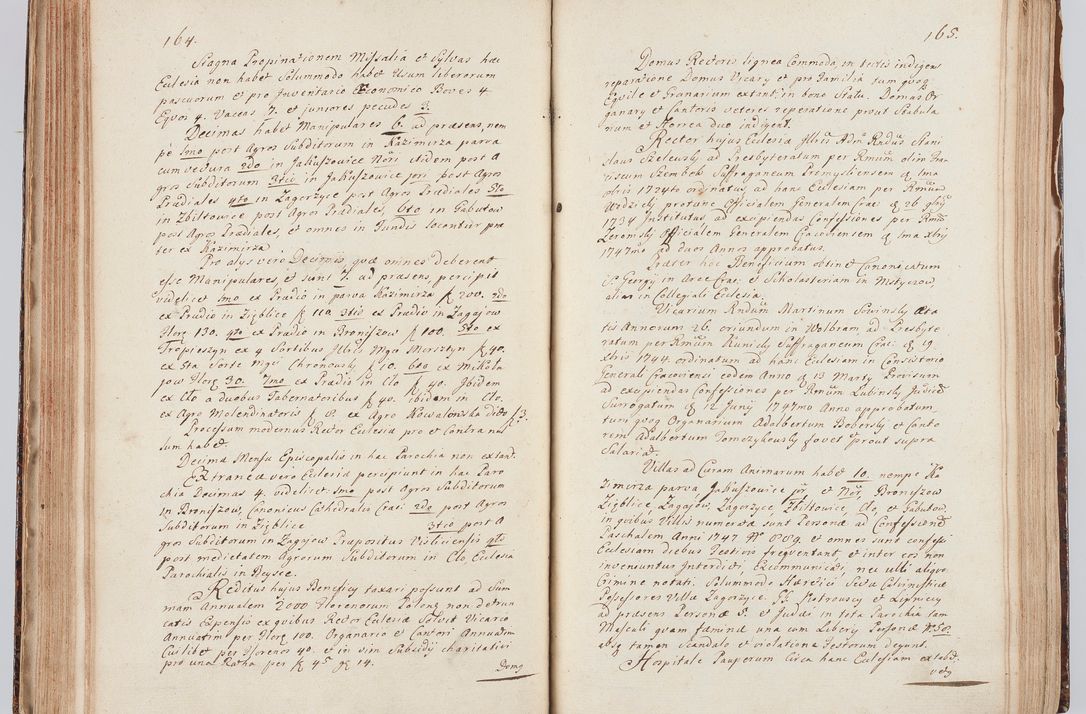 164.
Stagna Propinationem Missalia et Sylvas haec
Eclesia non habet Solummodo habet Usum liberorum
pascuorum et pro Inventario Œconomico Boves 4
Equos 4. Vaccas 7. et juniores pecudes 3.
Decimas habet Manipulares 6. ad præsens, nem
pè 1mo post Agros Subditorum in Kazimirza parva
cum vectura 2do in Jakuszowice Nõri itidem post A
gros Subditorum 3tio in Jakuszowice jori post Agros
Prædiales 4to in Zagorzyce post Agros Prædiales 5to
in Zbiltowice post Agros Prædiales, 6to in Gabutow
post Agros Prædiales, et omnes in Fundis locontur præ
ter ex Kazimirza.
Pro alijs vero Decimis, quæ omnes deberent
esse Manipulares, et sunt 7. ad præsens, percipit
videlicet 1mo ex Prædio in parva Kazimirza f 200. 2do
ex Prædio in Zięblice f 110. 3tio ex Prædio in Zagajow
Florq 130. 4to ex Prædio in Broniszow f 100. 5to ex
Tropieszyn ex 4 Sortibus Illris Mgci Morsztyn f 40.
ex 5ta Sorte Mgci Chronowski f 10. 6to ex Mikola
jow Florq 30. 7mo ex Prædio in Clo f 40. Ibidem
ex Clo a duobus Tabernatoribus f 40. ibidem in Clo.
ex Agro Molendinatoris f 8. ex Agro Kowalonska dicto f 3.
Processum modernus Rector Eclesiæ pro et Contra nul
lum habet.
Decima Mensæ Episcopalis in hac Parochia non extant.
Extranea vero Eclesia percipiunt in hac Paro
chia Decimas 4. videlicet 1mo post Agros Subditorum
in Broniszow, Canonicus Cathedralis Crac: 2do post Agros
Subditorum in Zięblice 3tio post A
gros Subditorum in Zagajow Præpositus Visliciensis 4to
post medietatem Agrorum Subditorum in Clo Eclesia
Parochialis in Beysce.
Reditus hujus Beneficij taxari possunt ad Sum
mam Annualem 2000 Florenorum Polonq non detrun
catis Expensis ex quibus Rector Eclesiæ Solvit Vicario
Annuatim per Florq 100. Organario et Cantori Annuatim
Cuilibet per Florenos 40. et in vim Subsidy charitativi
pro una Ratha per f 45 g 14.
Domq
165.
Domus Rectoris lignea Commoda, in tectis indigens
reparatione Domus Vicary et pro Familia tum quoq
Equile et Granarium extant in bono Statu. Domus Or
ganary et Cantoris vetores reperatione prout Stabula
num et Horrea duo indigent.
Rector hujus Eclesiæ Illris Adm Rndus Stani
slaus Szelewski ad Presbyteratum per Rmum olim Fra
ciscum Szembek Suffraganeum Premysliensem q 1ma
obris 1724to ordinatus, ad hanc Eclesiam per Rmum
Wrdzicky protunc Officialem Generalem Crac: q 26 gbris
1734 Institutus, ad excipiendas Confessiones per Rmum
Zeromsky Officialem Generalem Cracoviensem q 1ma xbris
1747mo ad duos Annos approbatus.
Præter hoc Beneficium obtinet Canonicatum
S. Georgy in Arce Crac: et Scholasteriam in Mstyczow,
aliar in Collegiali Eclesia.
Vicarium Rndum Martinum Sowinsky Æta
tis Annorum 26. oriundum in Wolbram, ad Presbyte
ratum per Rmum Kunicky Suffraganeum Crac: q 19
xbris 1744. ordinatum ad hanc Eclesiam in Consistorio
Generali Cracoviensi eodem Anno q 13 Marty Provisum
ad excipiendas Confessiones per Rmum Lubinsky Judice
Surrogatum q 12 Junij 1747mo Anno approbatum.
tum quoq Organarium Adalbertum Bobersky et Canto
rem Adalbertum Tomczykowsky fovet prout supra
Salariat.
Villas ad Curam Animarum habet 10. nempè Ka
zimirza parva Jakuszowice jr et Nõr, Broniszow
Zięblice Zagajow, Zagorzyce Zbiltowice, Clo, et Gabutow,
in quibus Villis numeratæ sunt Personæ ad Confessionem
Paschalem Anni 1747 No 889. et omnes sunt confessi
Eclesiam diebus Festivis freqventant et inter eos non
inveniuntur Interdicti, Excommunicati, nec ulli aliquo
Crimine notati. Solummodo Hæretici Sectæ Calvinisticæ
Possessores Villæ Zagorzyce. Gł. Piotrouscy et Lipniccy
ad præsens Personæ 5. et Judæi in tota Parochia tam
Masculi quam fæminæ una cum Liberis Personæ No 30.
absq tamen Scandalo et violatione Festorum degunt.
Hospitale Pauperum Circa hanc Eclesiam extat.